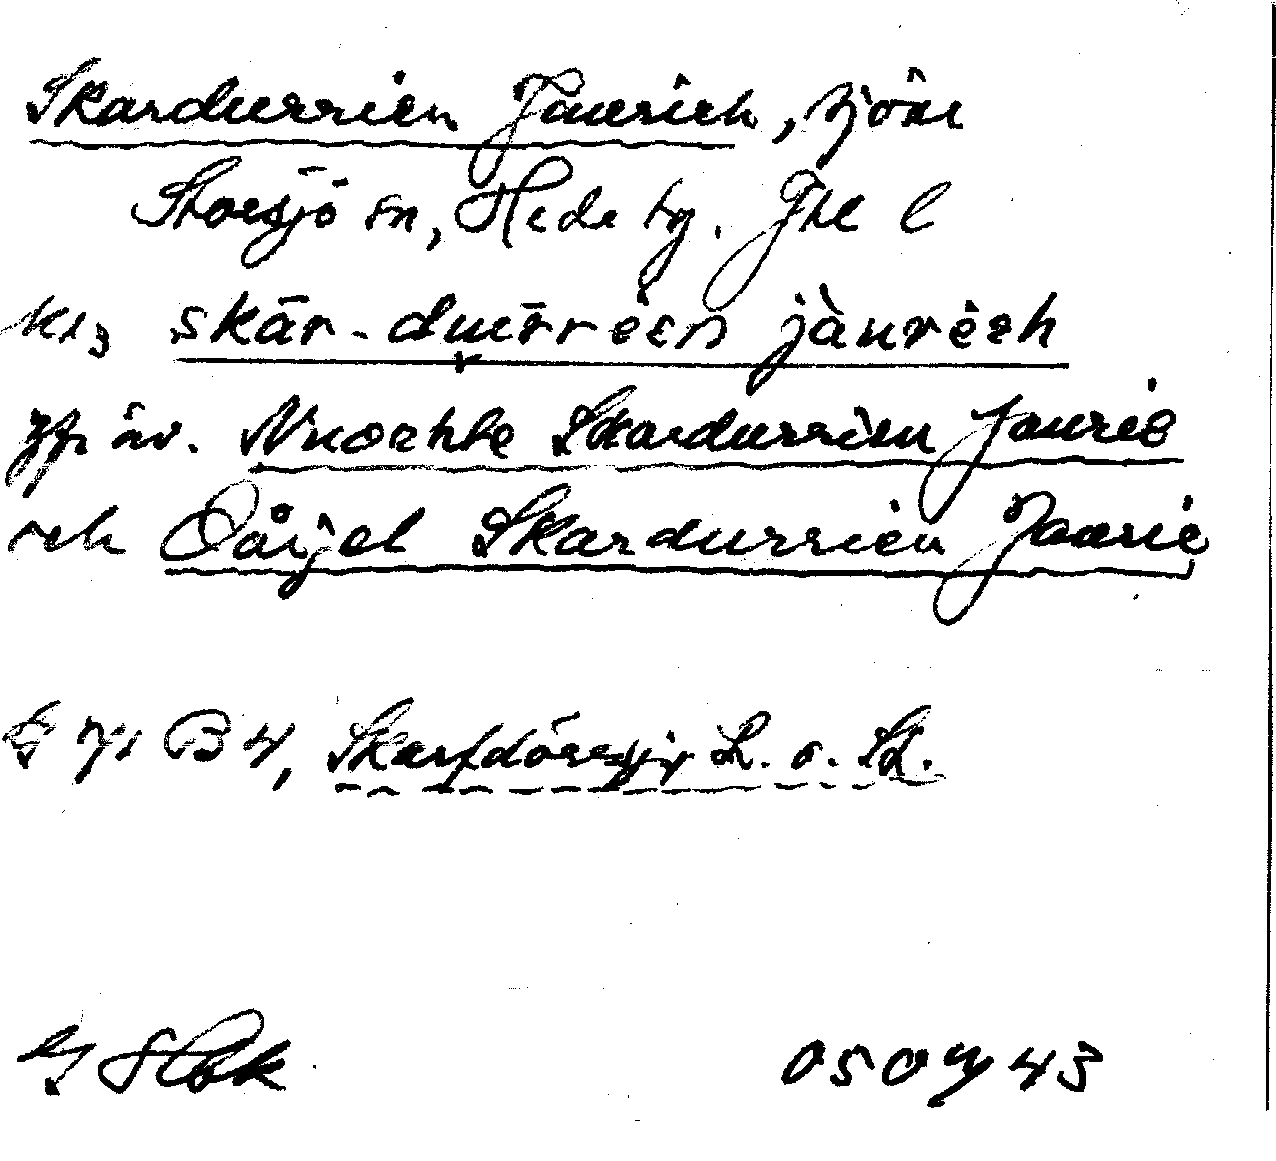 Skardurrien Jaurieh, sjöar
Storsjö sn, Hede tg. Jtl l
skār-duērrēen jàurēeh
jfr äv. Nuoehbe Skardurrien Jaurie
och Åårjel Skardurrien Jaarie
G 71 B 4, Skarfdörssjy L. o. St.
050743